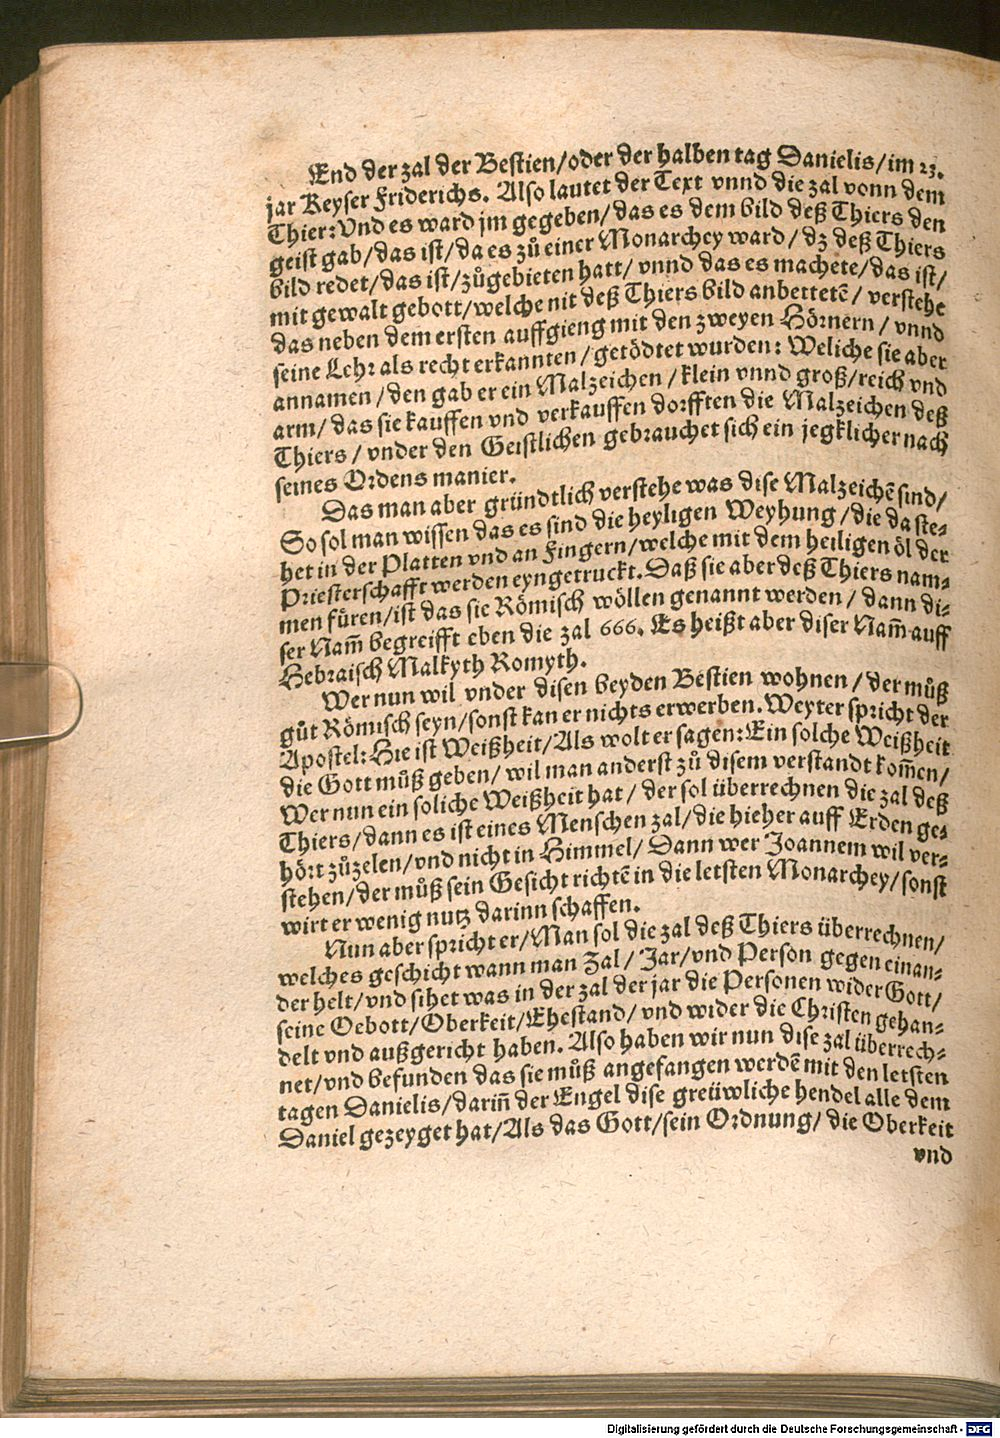 End der zal der Bestien/oder der halben tag Danielis/im 23.
jar Keyser Friderichs. Also lautet der Text vnnd die zal vonn dem
Thier: Vnd es ward jm gegeben/das es dem bild deß Thiers den
geist gab/das ist/da es zů einer Monarchey ward/dz deß Thiers
bild redet/das ist/zůgebieten hatt/vnnd das es machete/das ist/
mit gewalt gebott/welche nit deß Thiers bild anbettetē/verstehe
das neben dem ersten auffgieng mit den zweyen Hörnern/vnnd
seine Lehr als recht erkannten/getödtet wurden: Weliche sie aber
annamen/den gab er ein Malzeichen/klein vnnd groß/reich vnd
arm/das sie kauffen vnd verkauffen dorfften die Malzeichen deß
Thiers/vnder den Geistlichen gebrauchet sich ein jegklicher nach
seines Ordens manier.
Das man aber gründtlich verstehe was dise Malzeichē sind/
So sol man wissen das es sind die heyligen Weyhung/die da ste-
het in der Platten vnd an Fingern/welche mit dem heiligen öl der
Priesterschafft werden eyngetruckt. Daß sie aber deß Thiers nam-
men füren/ist das sie Römisch wöllen genannt werden/dann di-
ser Nam̄ begreifft eben die zal 666. Es heißt aber diser Nam̄ auff
Hebraisch Malkyth Romyth.
Wer nun wil vnder disen beyden Bestien wohnen/der můß
gůt Römisch seyn/sonst kan er nichts erwerben. Weyter spricht der
Apostel: Hie ist Weißheit/Als wolt er sagen: Ein solche Weißheit
die Gott můß geben/wil man anderst zů disem verstandt kom̄en/
Wer nun ein soliche Weißheit hat/der sol überrechnen die zal deß
Thiers/dann es ist eines Menschen zal/die hieher auff Erden ge-
hört zůzelen/vnd nicht in Himmel/Dann wer Joannem wil ver-
stehen/der můß sein Gesicht richtē in die letsten Monarchey/sonst
wirt er wenig nutz darinn schaffen.
Nun aber spricht er/Man sol die zal deß Thiers überrechnen/
welches geschicht wann man Zal/Jar/vnd Person gegen einan-
der helt/vnd sihet was in der zal der jar die Personen wider Gott/
seine Gebott/Oberkeit/Ehestand/vnd wider die Christen gehan-
delt vnd außgericht haben. Also haben wir nun dise zal überrech-
net/vnd befunden das sie můß angefangen werdē mit den letsten
tagen Danielis/darin̄ der Engel dise greüwliche hendel alle dem
Daniel gezeyget hat/Als das Gott/sein Ordnung/die Oberkeit
vnd
Digitalisierung gefördert durch die Deutsche Forschungsgemeinschaft - DFG